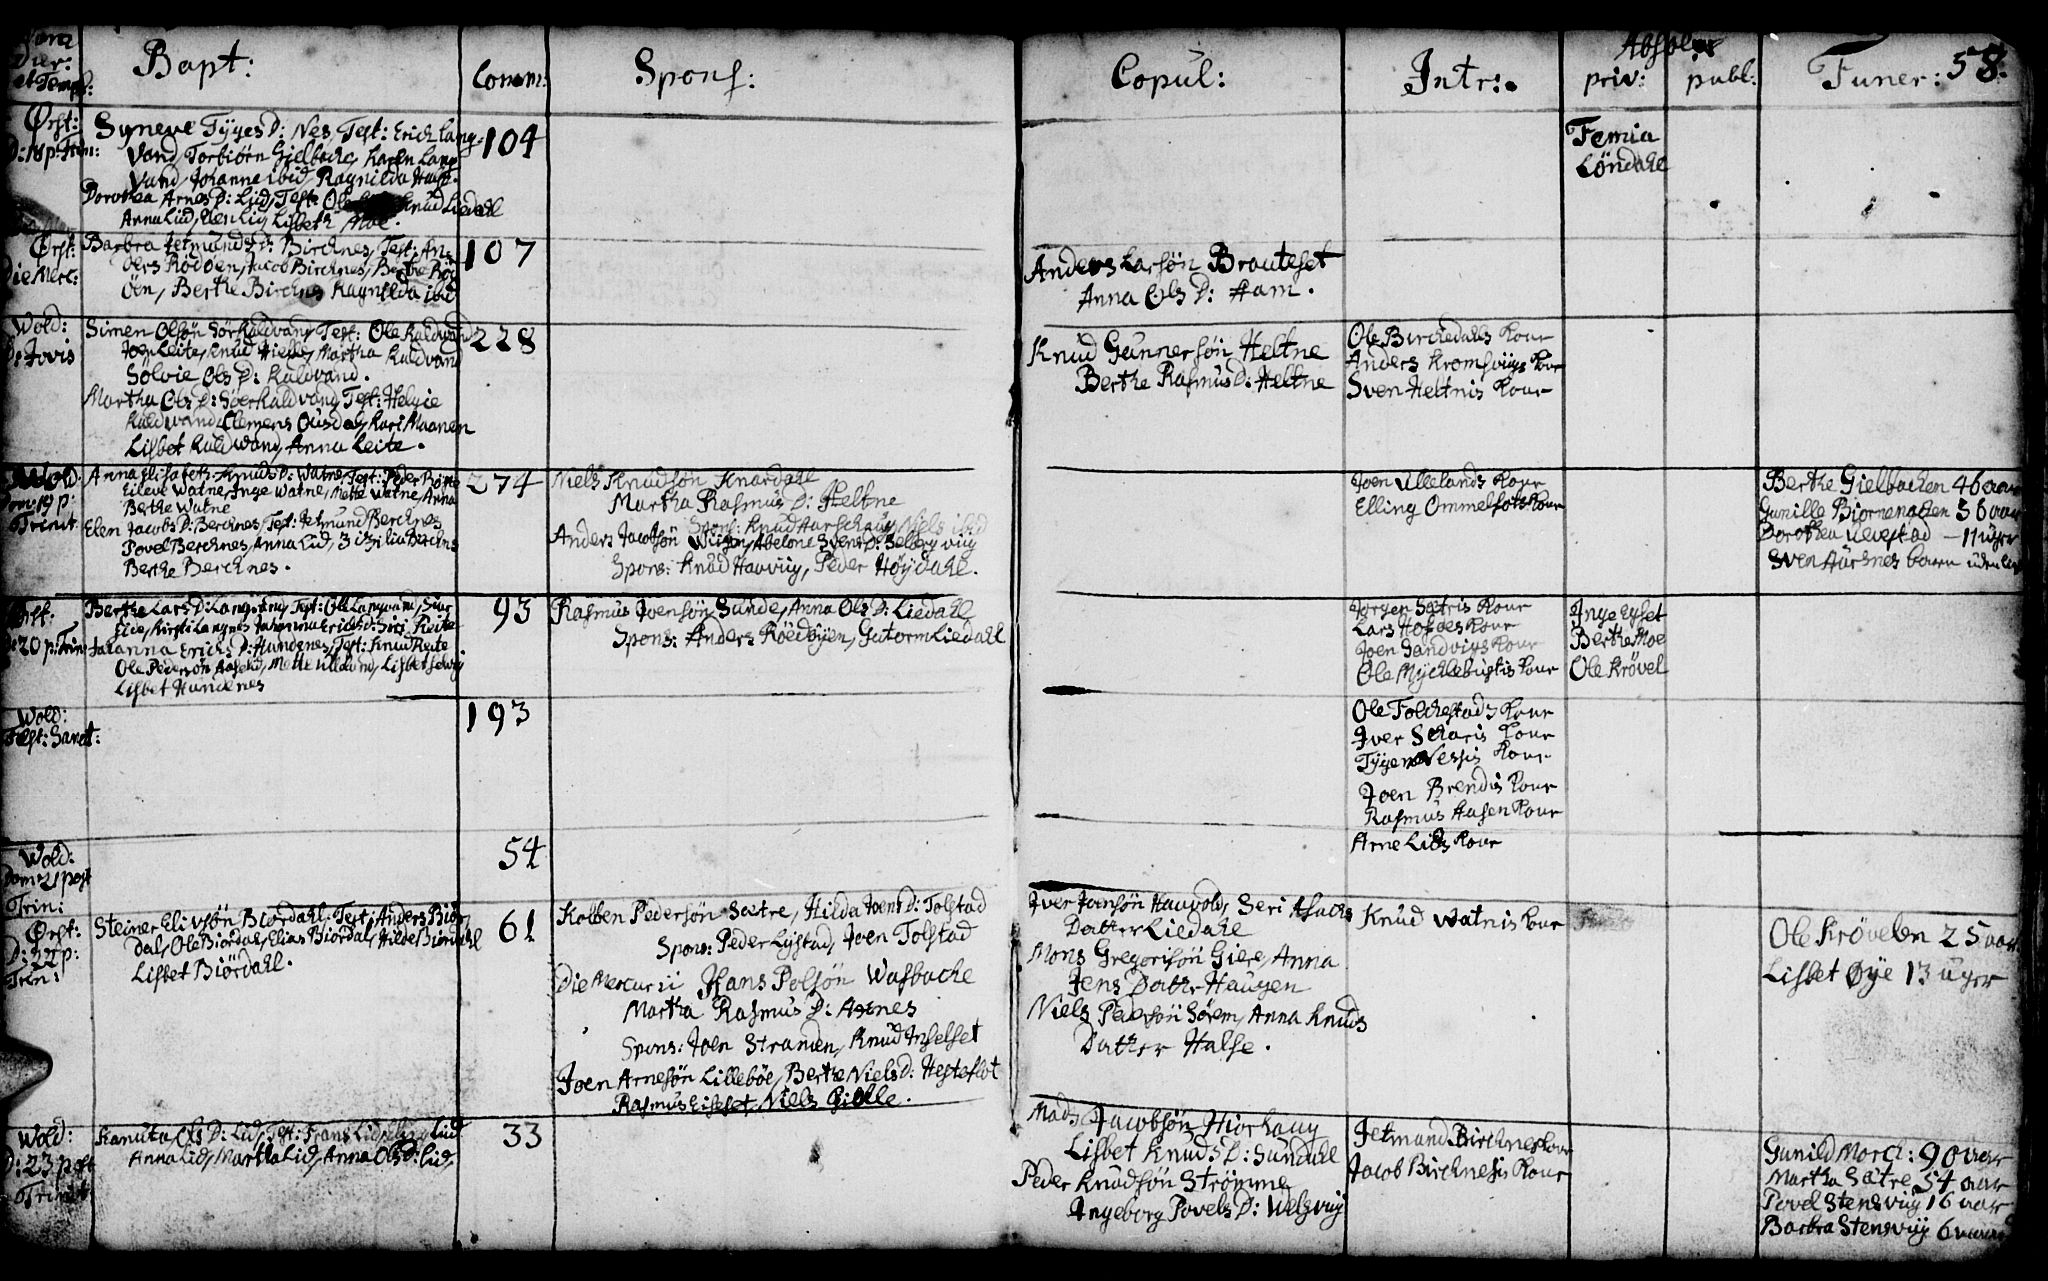 Dier:
et Temp:
Bapt:
Comm:
Spons:
Copul:
Intr:
Absolut
priv:
publ:
Funer:
58.
Ørst:
D: 18 p: Trin:
Syneve Tÿges D: Nes, Test: Erich Lang-
vand, Torbiörn Gielbache, Karen Lang
vand, Johanne ibid, Ragnilda
Dorothea Arnes D: Lid, Test: Ole Knud Liedahl
Anna Lid, Elen Lid, Lisbeth Moe.
104
Femia
Löndahl
Ørst:
Die Merc:
Barbra Jetmunds D: Birchnes, Test: An-
ders Rödöen, Jacob Birchnes, Berthe Röd
öen, Berthe Birchnes Ragnilda ibid
107
Anders Larsön Brauteset
Anna Ols D: Ham.
Wold:
D: Jovis
Simen Olsön Sörkaldvand, Test: Ole Kaldvand
Joen Leite, Knud, Martha Kaldvand
Solvie Ols D: Kaldvand.
Martha Ols D: Söerkaldvand, Test: Helgie
Kaldvand, Clemens Ousdal, Kari Maanen
Lisbet Kaldwand, Anna Leite.
228
Knud Gunnersön Heltne
Berthe Rasmus D: Heltne
Ole Birchedals Kone
Anders Kromsviigs Kone
Sven Heltnis Kone
Wold:
Dom: 19 p:
Trinit
Anna Elisabeth Knuds D: Watne, Test: Peder Röne
Eileve Watne, Inge Watne, Mette Watne, Anna
Berthe Watne
Elen Jacobs D: Berchnes, Test: Jetmund Berchnes
Povel Berchnes, Anna Lid, Zizilia Berchnes
Berthe Berchnes.
274
Niels Knudsön Knardahl
Martha Rasmus D: Heltne
Spons: Knud Aarschaug, Niels ibid
Anders Jacobsön Wiigen, Abelone Svens D: Selberg viig
Spons: Knud Hovviig, Peder Höydahl.
Joen Ullelands Kone
Elling Ommelfots Kone
Berthe Gielbachen 46 aar
Gunille Biornenakken 56 aar
Dorothea Ulvestad - 11 uger
Sven Aarsnes barn uden
Ørst:
D: 20 p: Trin:
Berthe Lars D: Langvand, Test: Ole Langvand,
Elie, Kirsti Langnes, Johanna Erichs D: Siri Reite
Johanna Erichs D: Hundenes, Test: Knud Reite
Ole Pedersön, Mette, Lisbet
Lisbet Hundenes
93
Rasmus Joensön Sunde, Anna Ols D: Liedahl
Spons: Anders Röedöyen, Gutorm Liedahl
Jörgen Sætris Kone
Lars Kone
Joen Sandvigs Kone
Ole Mychlebustis Kone
Inge Eÿset
Berthe Moe
Ole Krövel
Wold:
Fest: Sanct:
193
Ole Folchestads Kone
Iver Scharis Kone
Tÿge Nessis Kone
Joen Brendis Kone
Rasmus Aasen Kone
Wold:
Dom: 21 post
Trin:
54
Arne Lids Kone
Ørst:
D: 22 p:
Trin:
Steiner Elivsön Biordahl, Test: Anders Biör-
dal, Ole Biordal, Elias Biordal, Hilde Biordahl
Lisbet Biördahl.
61
Kolben Pedersön Sætre, Hilda Joens D: Tolstad
Spons: Peder Lystad, Joen Tolstad
Die Mercurii Hans Polsön Wasbache
Martha Rasmus D: Aarnes
Spons: Joen Stranden, Knud Inselset
Joen Arnesön Lilleböe, Berthe Niels D: Hesteflot
Rasmus Eiset, Niels Gielle.
Iver Jonsön Hauvold, Seri Asachs
Datter Liedahl
Mons Gregorisön Giere, Anna
Jens Datter Haugen
Niels Pedersön Sörem, Anna Knuds
Datter Halse.
Knud Watnis Kone
Ole Kröveln 25 aar
Lisbet Øye 13 uger
Wold:
D: 23 post
Trinit
Kanuta Ols D: Lid, Test: Frans Lid, Lid
Anna Lid, Martha Lid, Anna Ols D: Lid,
33
Mads Jacobsön Hiorhaug
Lisbet Knuds D: Sundahl
Peder Knudsön Strömme
Ingeborg Povels D: Welsviig
Jetmund Birchnes Kone
Jacob Birchnesis Kone
Gunild Morch: 90 aar
Martha Sætre 54 aar
Povel Stensviig 16 aar
Barbra Stensviig 6